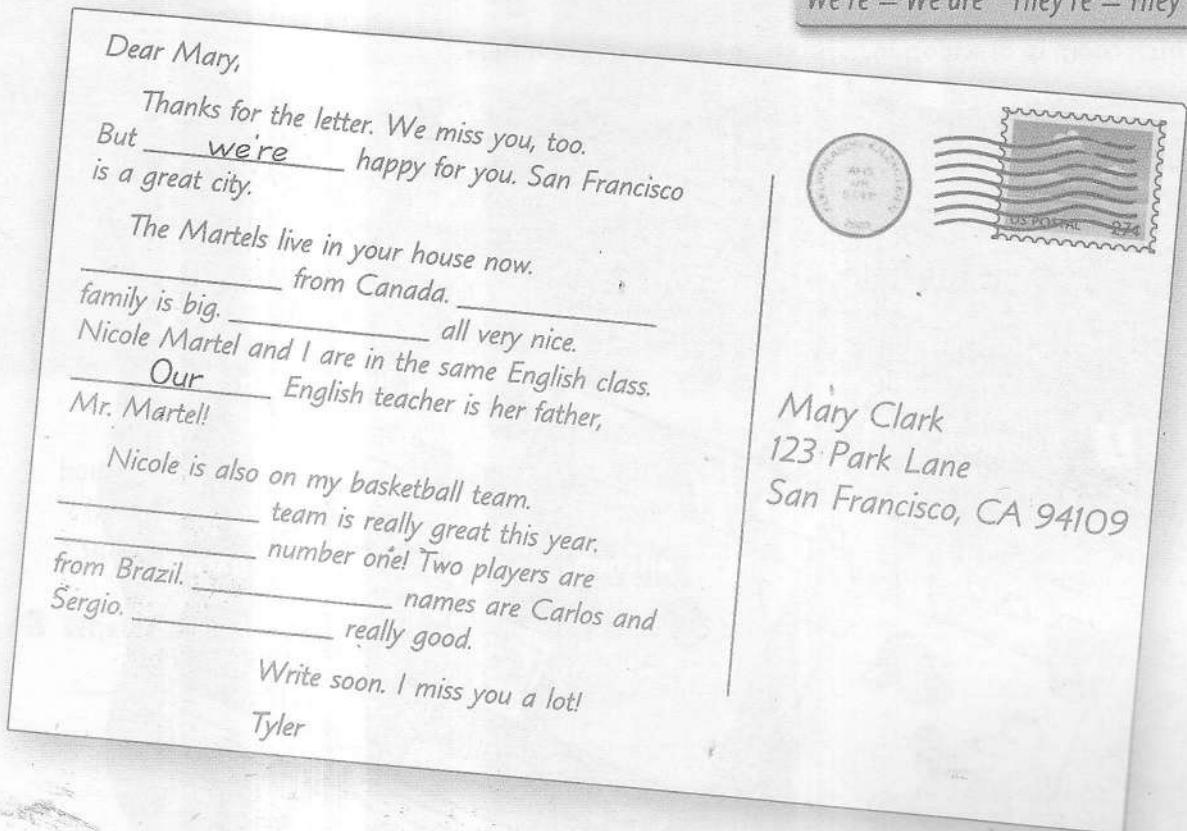 We're = We are They're = They
Dear Mary,
Thanks for the letter. We miss you, too.
But we're happy for you. San Francisco
is a great city.
The Martels live in your house now.
____________ from Canada. ____________
family is big. ____________ all very nice.
Nicole Martel and I are in the same English class.
Our English teacher is her father,
Mr. Martel!
Nicole is also on my basketball team.
____________ team is really great this year.
____________ number one! Two players are
from Brazil. ____________ names are Carlos and
Sergio. ____________ really good.
Write soon. I miss you a lot!
Tyler
US POSTAL 27¢
Mary Clark
123 Park Lane
San Francisco, CA 94109